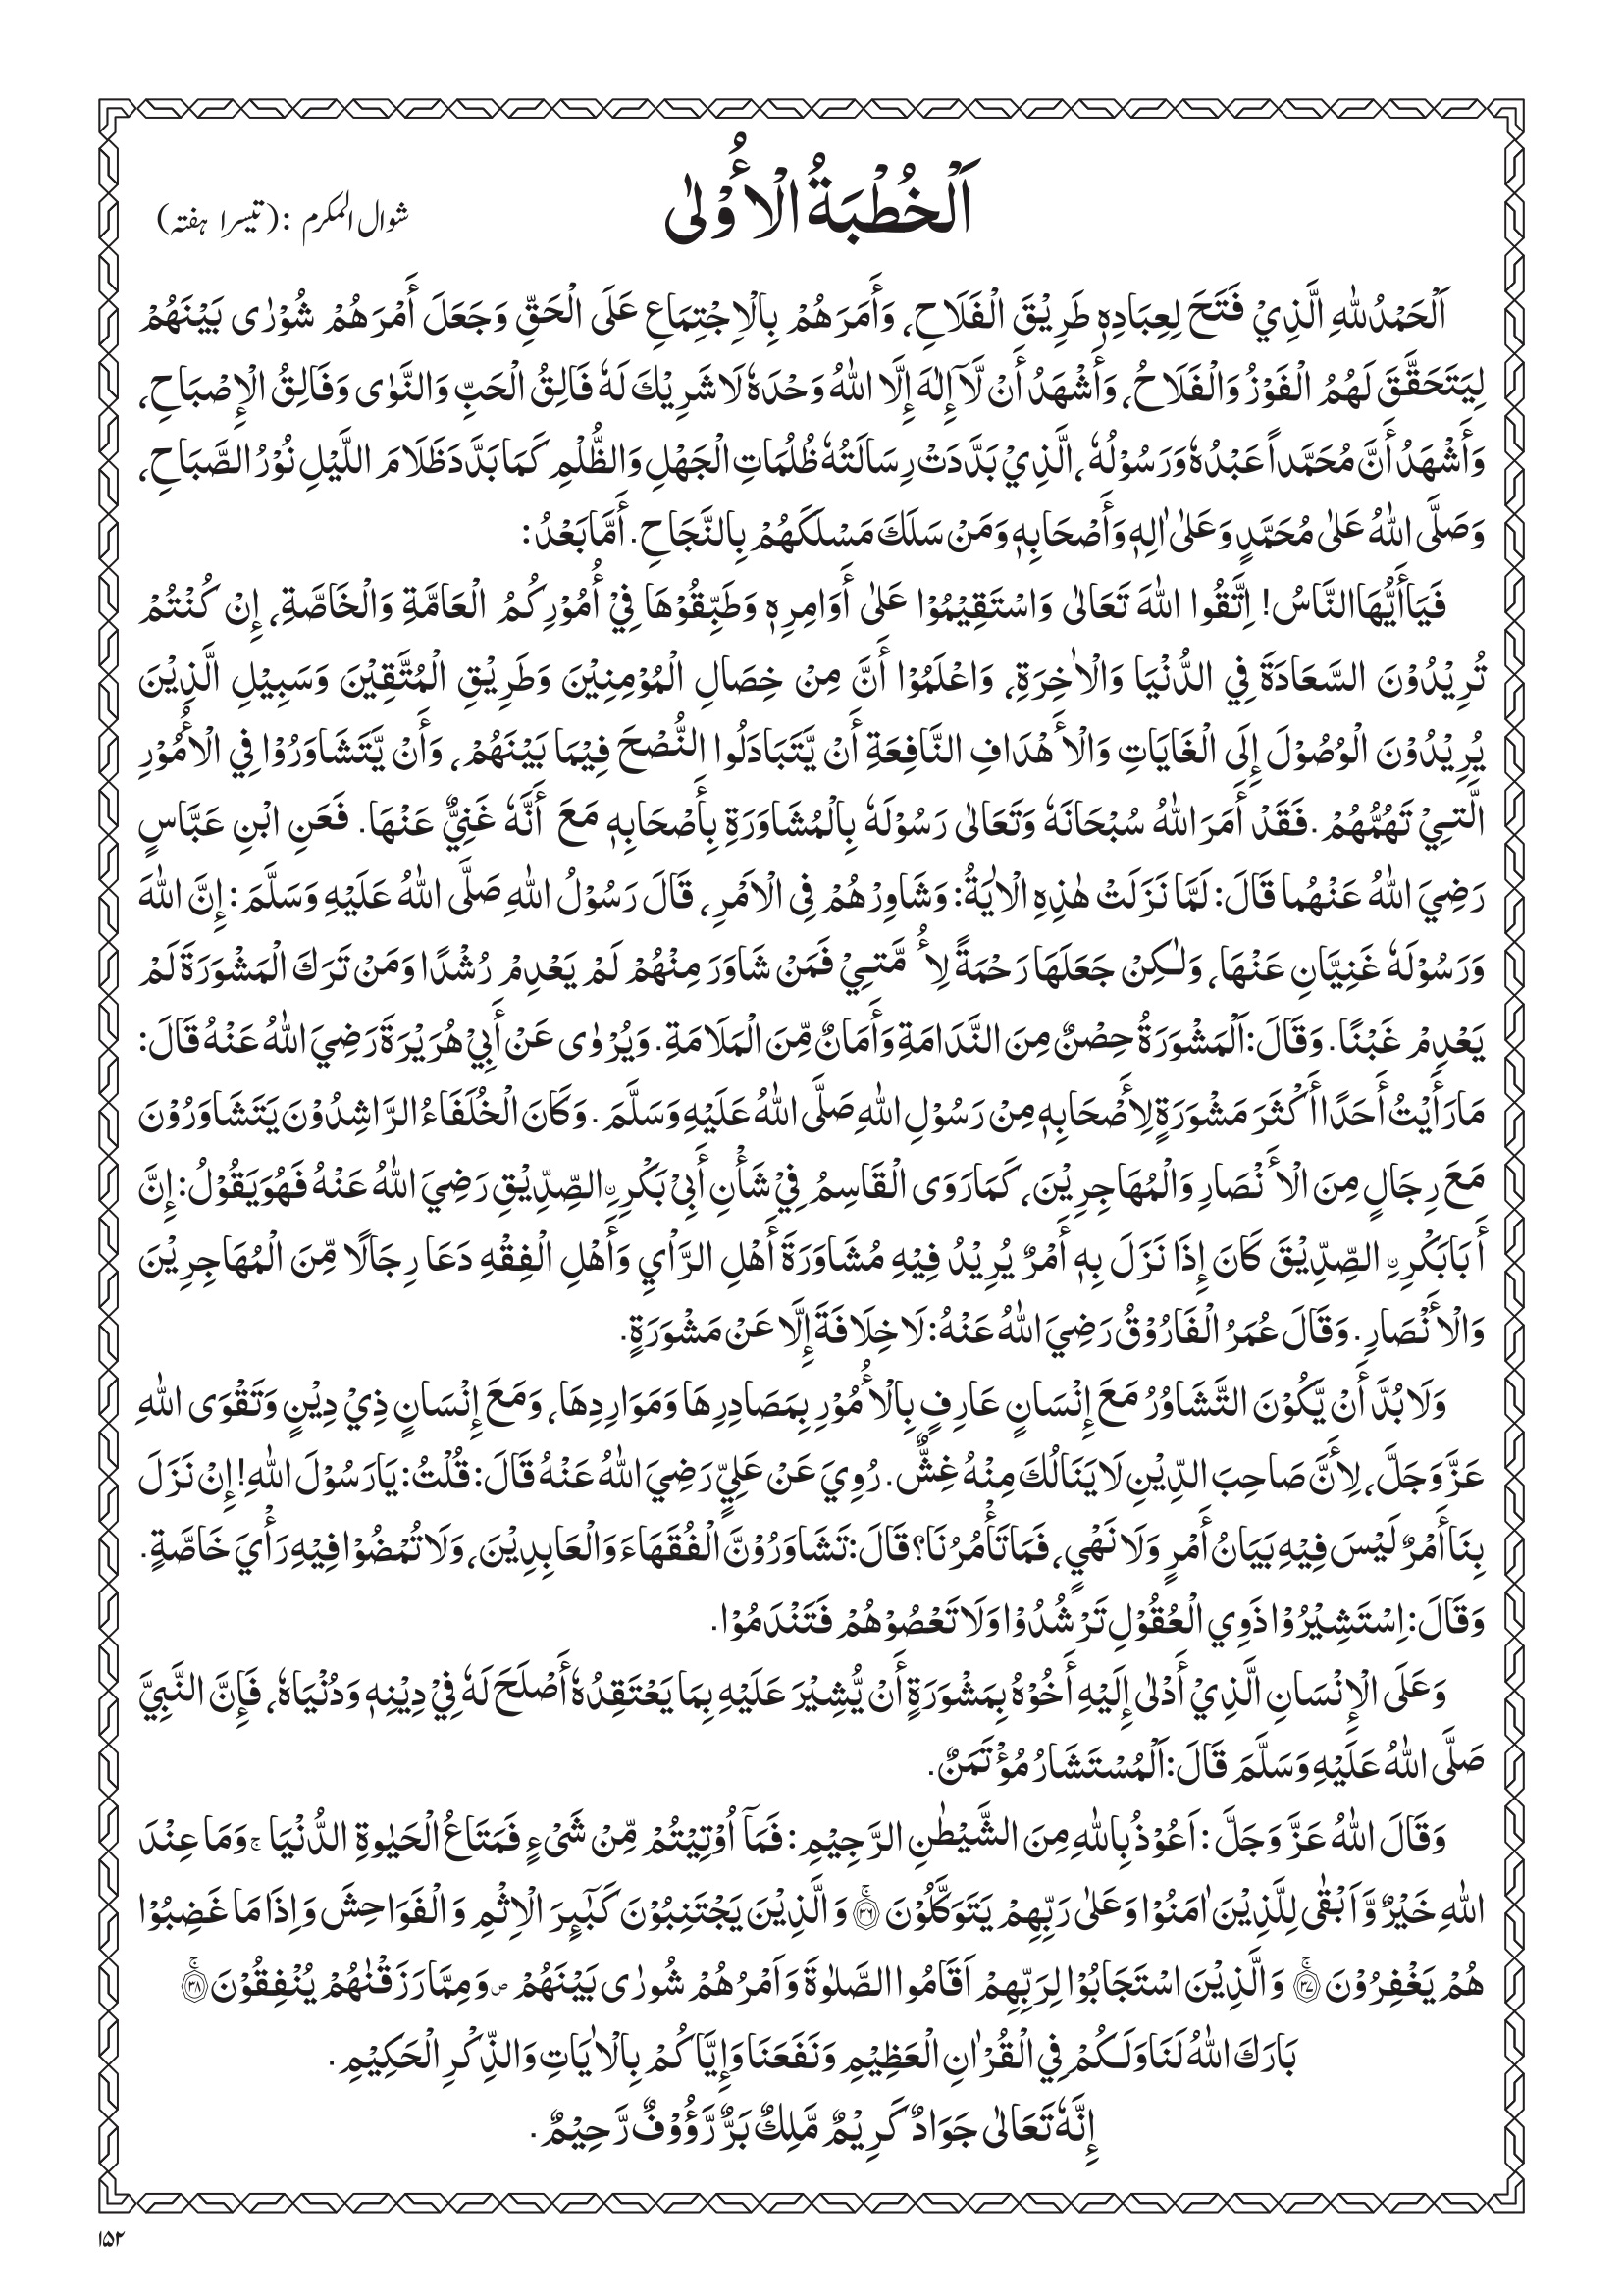 اَلْخُطْبَةُ الْأُوْلٰى
شوال المکرم :(تیسرا ہفتہ)
اَلْحَمْدُ لِلّٰهِ الَّذِيْ فَتَحَ لِعِبَادِهٖ طَرِيْقَ الْفَلَاحِ، وَأَمَرَهُمْ بِالْاِجْتِمَاعِ عَلَى الْحَقِّ وَجَعَلَ أَمْرَهُمْ شُوْرٰى بَيْنَهُمْ
لِيَتَحَقَّقَ لَهُمُ الْفَوْزُ وَالْفَلَاحُ، وَأَشْهَدُ أَنْ لَّآ إِلٰهَ إِلَّا اللّٰهُ وَحْدَهٗ لَا شَرِيْكَ لَهٗ فَالِقُ الْحَبِّ وَالنَّوٰى وَفَالِقُ الْإِصْبَاحِ،
وَأَشْهَدُ أَنَّ مُحَمَّداً عَبْدُهٗ وَرَسُوْلُهٗ، الَّذِيْ بَدَّدَتْ رِسَالَتُهٗ ظُلُمَاتِ الْجَهْلِ وَالظُّلْمِ كَمَا بَدَّدَ ظَلَامَ اللَّيْلِ نُوْرُ الصَّبَاحِ،
وَصَلَّى اللّٰهُ عَلٰى مُحَمَّدٍ وَعَلٰى اٰلِهٖ وَأَصْحَابِهٖ وَمَنْ سَلَكَ مَسْلَكَهُمْ بِالنَّجَاحِ. أَمَّا بَعْدُ:
فَيَا أَيُّهَا النَّاسُ! اِتَّقُوا اللّٰهَ تَعَالٰى وَاسْتَقِيْمُوْا عَلٰى أَوَامِرِهٖ وَطَبِّقُوْهَا فِيْ أُمُوْرِكُمُ الْعَامَّةِ وَالْخَاصَّةِ، إِنْ كُنْتُمْ
تُرِيْدُوْنَ السَّعَادَةَ فِي الدُّنْيَا وَالْاٰخِرَةِ، وَاعْلَمُوْا أَنَّ مِنْ خِصَالِ الْمُوْمِنِيْنَ وَطَرِيْقِ الْمُتَّقِيْنَ وَسَبِيْلِ الَّذِيْنَ
يُرِيْدُوْنَ الْوُصُوْلَ إِلَى الْغَايَاتِ وَالْأَهْدَافِ النَّافِعَةِ أَنْ يَّتَبَادَلُوا النُّصْحَ فِيْمَا بَيْنَهُمْ، وَأَنْ يَّتَشَاوَرُوْا فِي الْأُمُوْرِ
الَّتِيْ تَهُمُّهُمْ. فَقَدْ أَمَرَ اللّٰهُ سُبْحَانَهٗ وَتَعَالٰى رَسُوْلَهٗ بِالْمُشَاوَرَةِ بِأَصْحَابِهٖ مَعَ أَنَّهٗ غَنِيٌّ عَنْهَا. فَعَنِ ابْنِ عَبَّاسٍ
رَضِيَ اللّٰهُ عَنْهُما قَالَ: لَمَّا نَزَلَتْ هٰذِهِ الْاٰيَةُ: وَشَاوِرْهُمْ فِى الْاَمْرِ، قَالَ رَسُوْلُ اللّٰهِ صَلَّى اللّٰهُ عَلَيْهِ وَسَلَّمَ: إِنَّ اللّٰهَ
وَرَسُوْلَهٗ غَنِيَّانِ عَنْهَا، وَلٰكِنْ جَعَلَهَا رَحْمَةً لِأُمَّتِيْ فَمَنْ شَاوَرَ مِنْهُمْ لَمْ يَعْدِمْ رُشْدًا وَمَنْ تَرَكَ الْمَشْوَرَةَ لَمْ
يَعْدِمْ غَبْنًا. وَقَالَ: اَلْمَشْوَرَةُ حِصْنٌ مِنَ النَّدَامَةِ وَأَمَانٌ مِّنَ الْمَلَامَةِ. وَيُرْوٰى عَنْ أَبِيْ هُرَيْرَةَ رَضِيَ اللّٰهُ عَنْهُ قَالَ:
مَا رَأَيْتُ أَحَدًا أَكْثَرَ مَشْوَرَةٍ لِأَصْحَابِهٖ مِنْ رَسُوْلِ اللّٰهِ صَلَّى اللّٰهُ عَلَيْهِ وَسَلَّمَ. وَكَانَ الْخُلَفَاءُ الرَّاشِدُوْنَ يَتَشَاوَرُوْنَ
مَعَ رِجَالٍ مِنَ الْأَنْصَارِ وَالْمُهَاجِرِيْنَ، كَمَا رَوَى الْقَاسِمُ فِيْ شَأْنِ أَبِيْ بَكْرِ ۨ الصِّدِّيْقِ رَضِيَ اللّٰهُ عَنْهُ فَهُوَ يَقُوْلُ: إِنَّ
أَبَا بَكْرِ ۨ الصِّدِّيْقَ كَانَ إِذَا نَزَلَ بِهٖ أَمْرٌ يُرِيْدُ فِيْهِ مُشَاوَرَةَ أَهْلِ الرَّاْيِ وَأَهْلِ الْفِقْهِ دَعَا رِجَالًا مِّنَ الْمُهَاجِرِيْنَ
وَالْأَنْصَارِ. وَقَالَ عُمَرُ الْفَارُوْقُ رَضِيَ اللّٰهُ عَنْهُ: لَا خِلَافَةَ إِلَّا عَنْ مَشْوَرَةٍ.
وَلَا بُدَّ أَنْ يَّكُوْنَ التَّشَاوُرُ مَعَ إِنْسَانٍ عَارِفٍ بِالْأُمُوْرِ بِمَصَادِرِهَا وَمَوَارِدِهَا، وَمَعَ إِنْسَانٍ ذِيْ دِيْنٍ وَتَقْوَى اللّٰهِ
عَزَّ وَجَلَّ، لِأَنَّ صَاحِبَ الدِّيْنِ لَا يَنَالُكَ مِنْهُ غِشٌّ. رُوِيَ عَنْ عَلِيٍّ رَضِيَ اللّٰهُ عَنْهُ قَالَ: قُلْتُ: يَا رَسُوْلَ اللّٰهِ! إِنْ نَزَلَ
بِنَا أَمْرٌ لَيْسَ فِيْهِ بَيَانُ أَمْرٍ وَلَا نَهْيٍ، فَمَا تَأْمُرُنَا؟ قَالَ: تَشَاوَرُوْنَّ الْفُقَهَاءَ وَالْعَابِدِيْنَ، وَلَا تُمْضُوْا فِيْهِ رَأْيَ خَاصَّةٍ.
وَقَالَ: اِسْتَشِيْرُوْا ذَوِي الْعُقُوْلِ تَرْشُدُوْا وَلَا تَعْصُوْهُمْ فَتَنْدَمُوْا.
وَعَلَى الْإِنْسَانِ الَّذِيْ أَدْلٰى إِلَيْهِ أَخُوْهُ بِمَشْوَرَةٍ أَنْ يُّشِيْرَ عَلَيْهِ بِمَا يَعْتَقِدُهٗ أَصْلَحَ لَهٗ فِيْ دِيْنِهٖ وَدُنْيَاهٗ، فَإِنَّ النَّبِيَّ
صَلَّى اللّٰهُ عَلَيْهِ وَسَلَّمَ قَالَ: اَلْمُسْتَشَارُ مُؤْتَمَنٌ.
وَقَالَ اللّٰهُ عَزَّ وَجَلَّ: اَعُوْذُ بِاللّٰهِ مِنَ الشَّيْطٰنِ الرَّجِيْمِ: فَمَآ اُوْتِيْتُمْ مِّنْ شَىْءٍ فَمَتَاعُ الْحَيٰوةِ الدُّنْيَا ۚ وَمَا عِنْدَ
اللّٰهِ خَيْرٌ وَّاَبْقٰى لِلَّذِيْنَ اٰمَنُوْا وَعَلٰى رَبِّهِمْ يَتَوَكَّلُوْنَ ۚ﴿۳۶﴾ وَالَّذِيْنَ يَجْتَنِبُوْنَ كَبٰٓئِرَ الْاِثْمِ وَالْفَوَاحِشَ وَاِذَا مَا غَضِبُوْا
هُمْ يَغْفِرُوْنَ ۚ﴿۳۷﴾ وَالَّذِيْنَ اسْتَجَابُوْا لِرَبِّهِمْ اَقَامُوا الصَّلٰوةَ وَاَمْرُهُمْ شُورٰى بَيْنَهُمْ ۪ وَمِمَّا رَزَقْنٰهُمْ يُنْفِقُوْنَ ۚ﴿۳۸﴾
بَارَكَ اللّٰهُ لَنَا وَلَكُمْ فِي الْقُرْاٰنِ الْعَظِيْمِ وَنَفَعَنَا وَإِيَّاكُمْ بِالْاٰيَاتِ وَالذِّكْرِ الْحَكِيْمِ.
إِنَّهٗ تَعَالٰى جَوَادٌ كَرِيْمٌ مَّلِكٌ بَرٌّ رَّؤُوْفٌ رَّحِيْمٌ.
۱۵۲